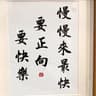 慢慢來最快
要正向
要快樂